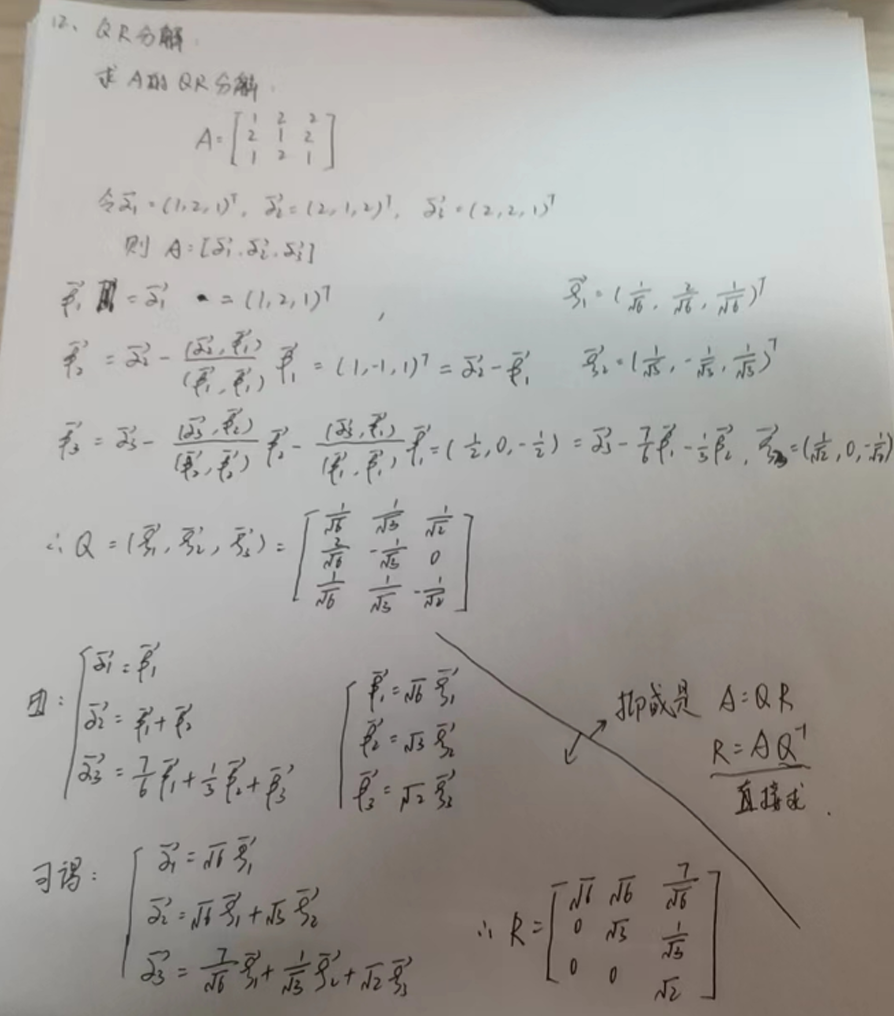 12、QR分解：
求A的QR分解：
A=[1 2 2
2 1 2
1 2 1]
令α₁⃗=(1,2,1)ᵀ, α₂⃗=(2,1,2)ᵀ, α₂⃗=(2,2,1)ᵀ
则 A=[α₁⃗, α₂⃗, α₃⃗]
β₁⃗ = α₁⃗ = (1,2,1)ᵀ, ξ₁⃗=(1/√6, 2/√6, 1/√6)ᵀ
β₂⃗ = α₂⃗ - (α₂⃗,β₁⃗)/(β₁⃗,β₁⃗) β₁⃗ = (1,-1,1)ᵀ = α₂⃗-β₁⃗ ξ₂⃗=(1/√3, -1/√3, 1/√3)ᵀ
β₃⃗ = α₃⃗ - (α₃⃗,β₂⃗)/(β₂⃗,β₂⃗) β₂⃗ - (α₃⃗,β₁⃗)/(β₁⃗,β₁⃗) β₁⃗=(1/2,0,-1/2) = α₃⃗-7/6β₁⃗-1/3β₂⃗, ξ₃⃗=(1/√2,0,-1/√2)
∴Q=(ξ₁⃗,ξ₂⃗,ξ₃⃗)=[1/√6 1/√3 1/√2
2/√6 -1/√3 0
1/√6 1/√3 -1/√2]
由: { α₁⃗=β₁⃗
α₂⃗=β₁⃗+β₂⃗
α₃⃗=7/6β₁⃗+1/3β₂⃗+β₃⃗
{ β₁⃗=√6 ξ₁⃗
β₂⃗=√3 ξ₂⃗
β₃⃗=√2 ξ₃⃗
抑或是 A=QR
R=AQ⁻¹
直接求.
可得: { α₁⃗=√6 ξ₁⃗
α₂⃗=√6 ξ₁⃗+√3 ξ₂⃗
α₃⃗=7/√6 ξ₁⃗+1/√3 ξ₂⃗+√2 ξ₃⃗
∴R=[√6 √6 7/√6
0 √3 1/√3
0 0 √2]